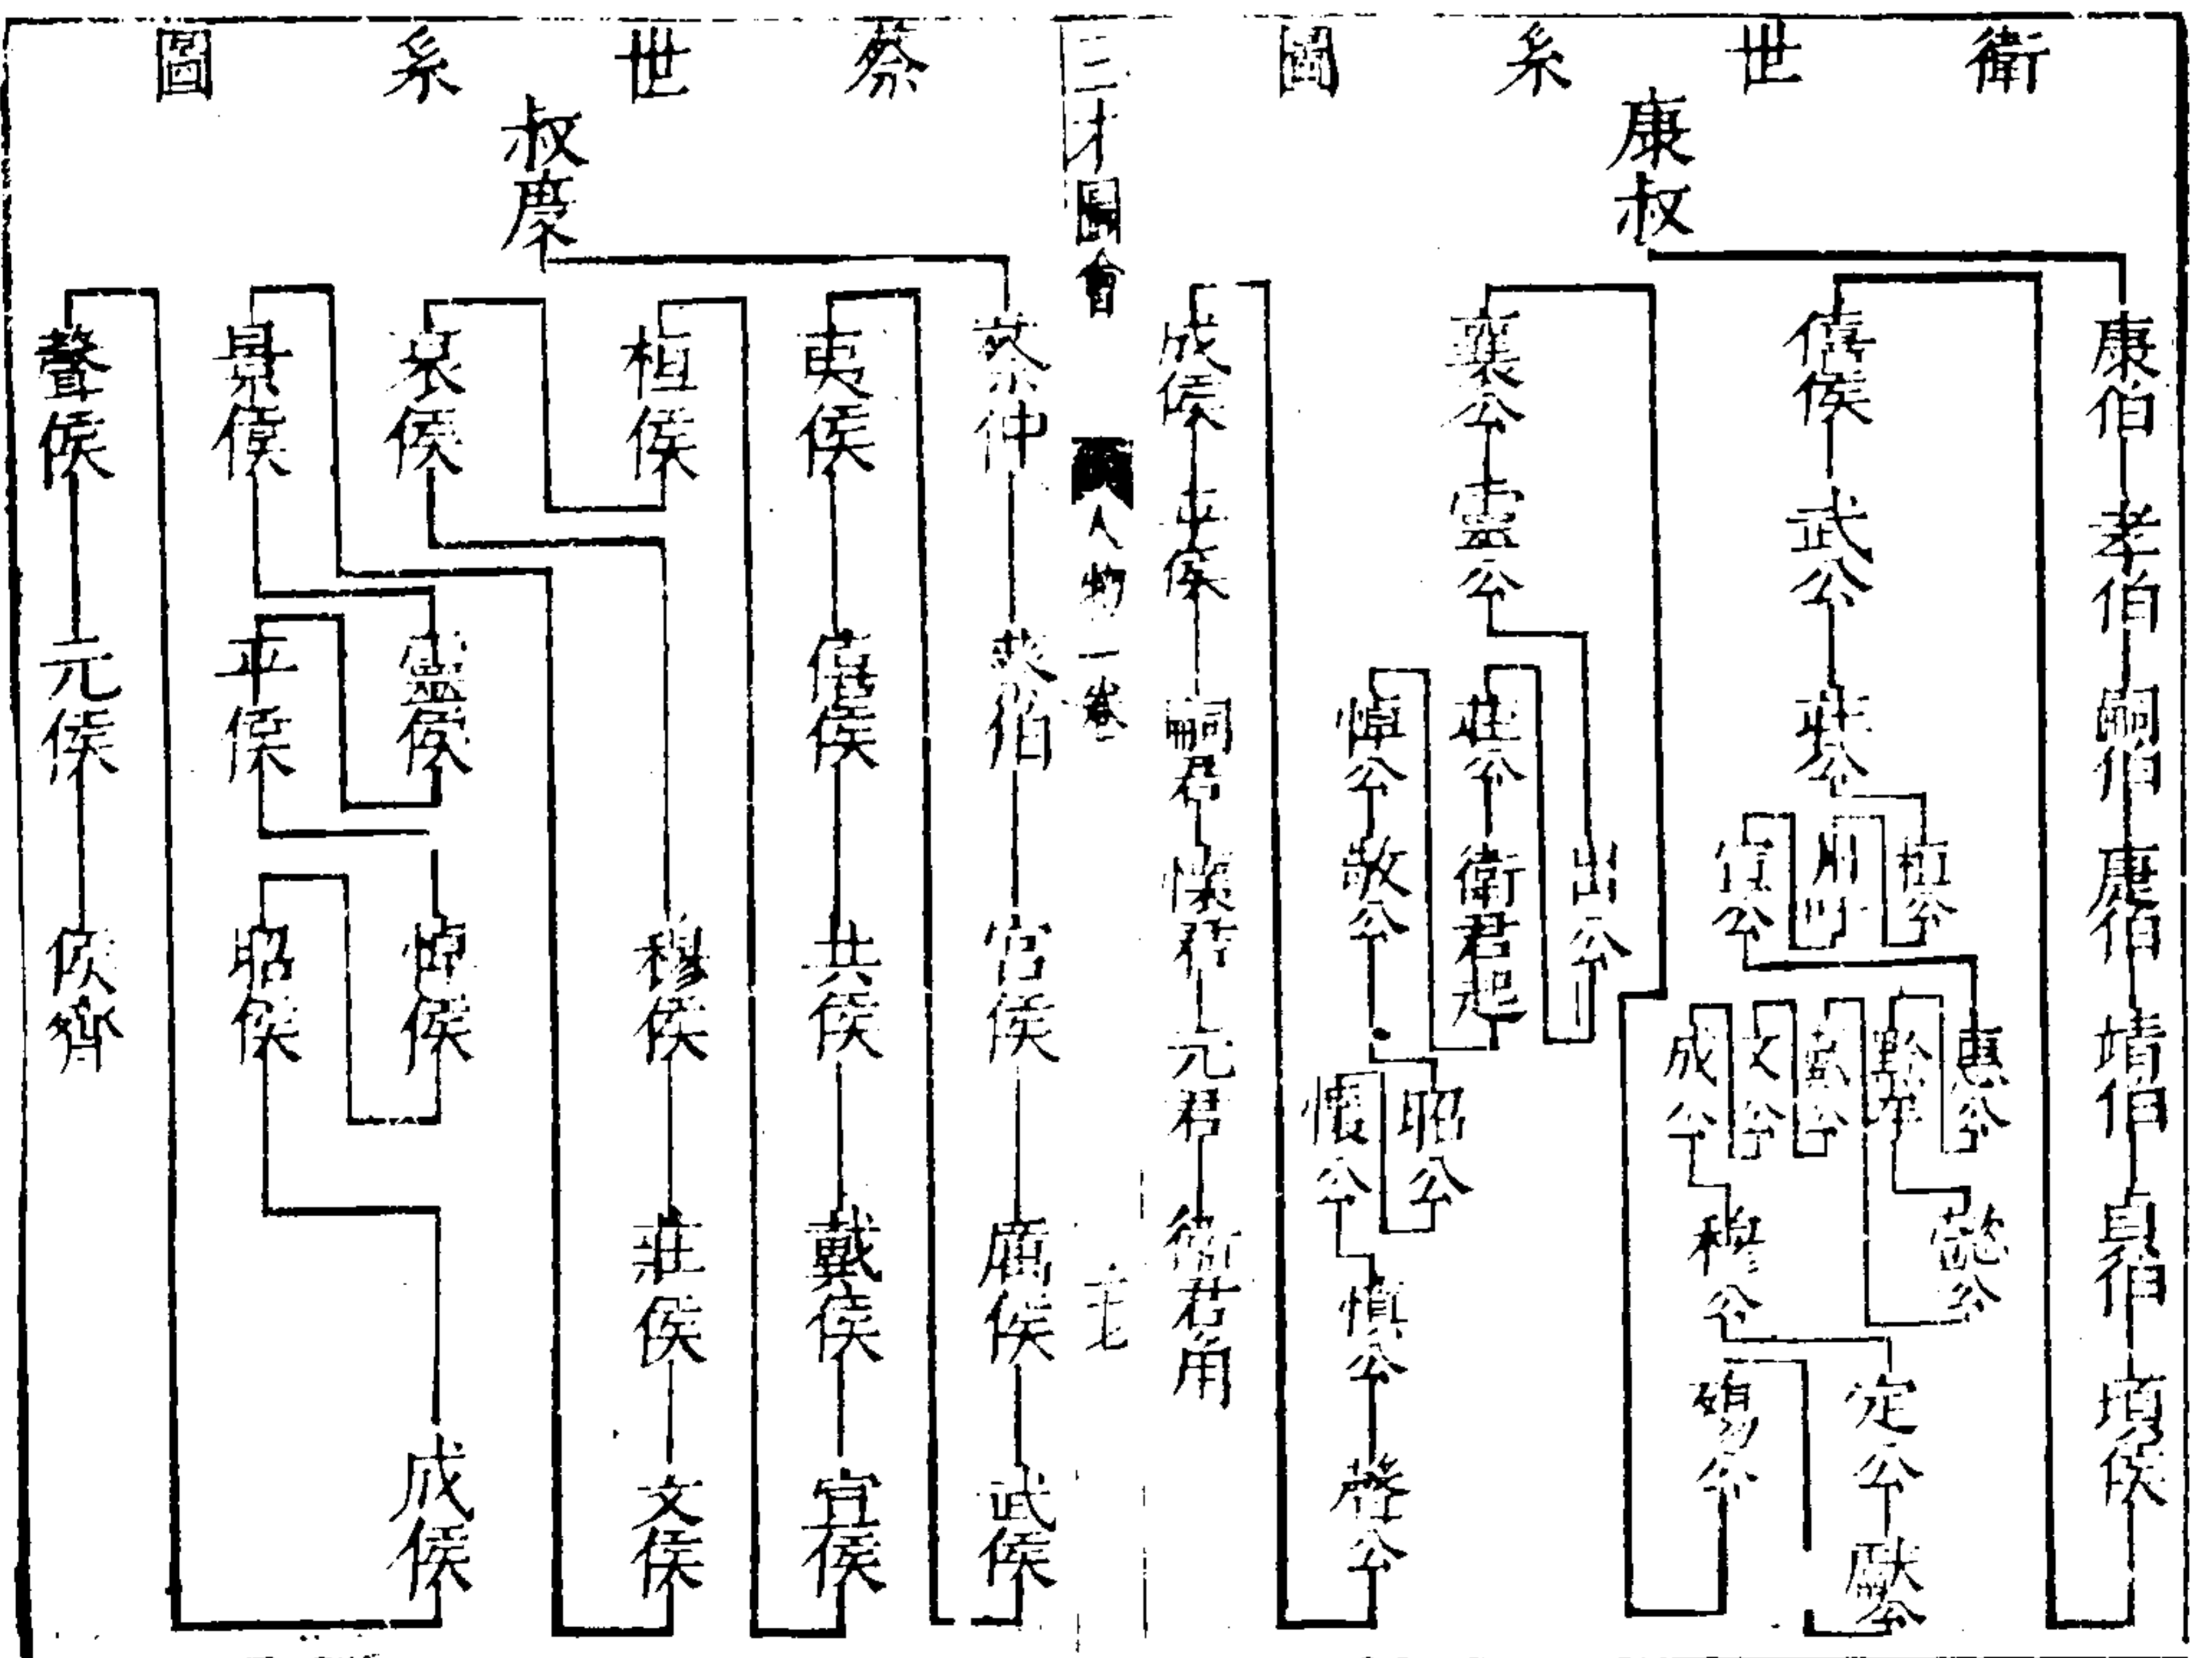 衛世系圖
康叔
康伯
孝伯
嗣伯
康伯
靖伯
貞伯
頃侯
僖侯
武公
莊公
桓公
州吁
宣公
惠公
黔牟
懿公
戴公
文公
成公
穆公
定公
獻公
殤公
襄公
靈公
出公
莊公
衛君起
悼公
敬公
昭公
懷公
慎公
聲公
成侯
平侯
嗣君
懷君
元君
衛君角
三才圖會
人物一卷
蔡世系圖
叔度
蔡仲
蔡伯
宮侯
厲侯
武侯
夷侯
僖侯
共侯
戴侯
宣侯
桓侯
哀侯
穆侯
莊侯
文侯
景侯
靈侯
平侯
悼侯
昭侯
成侯
聲侯
元侯
侯齊